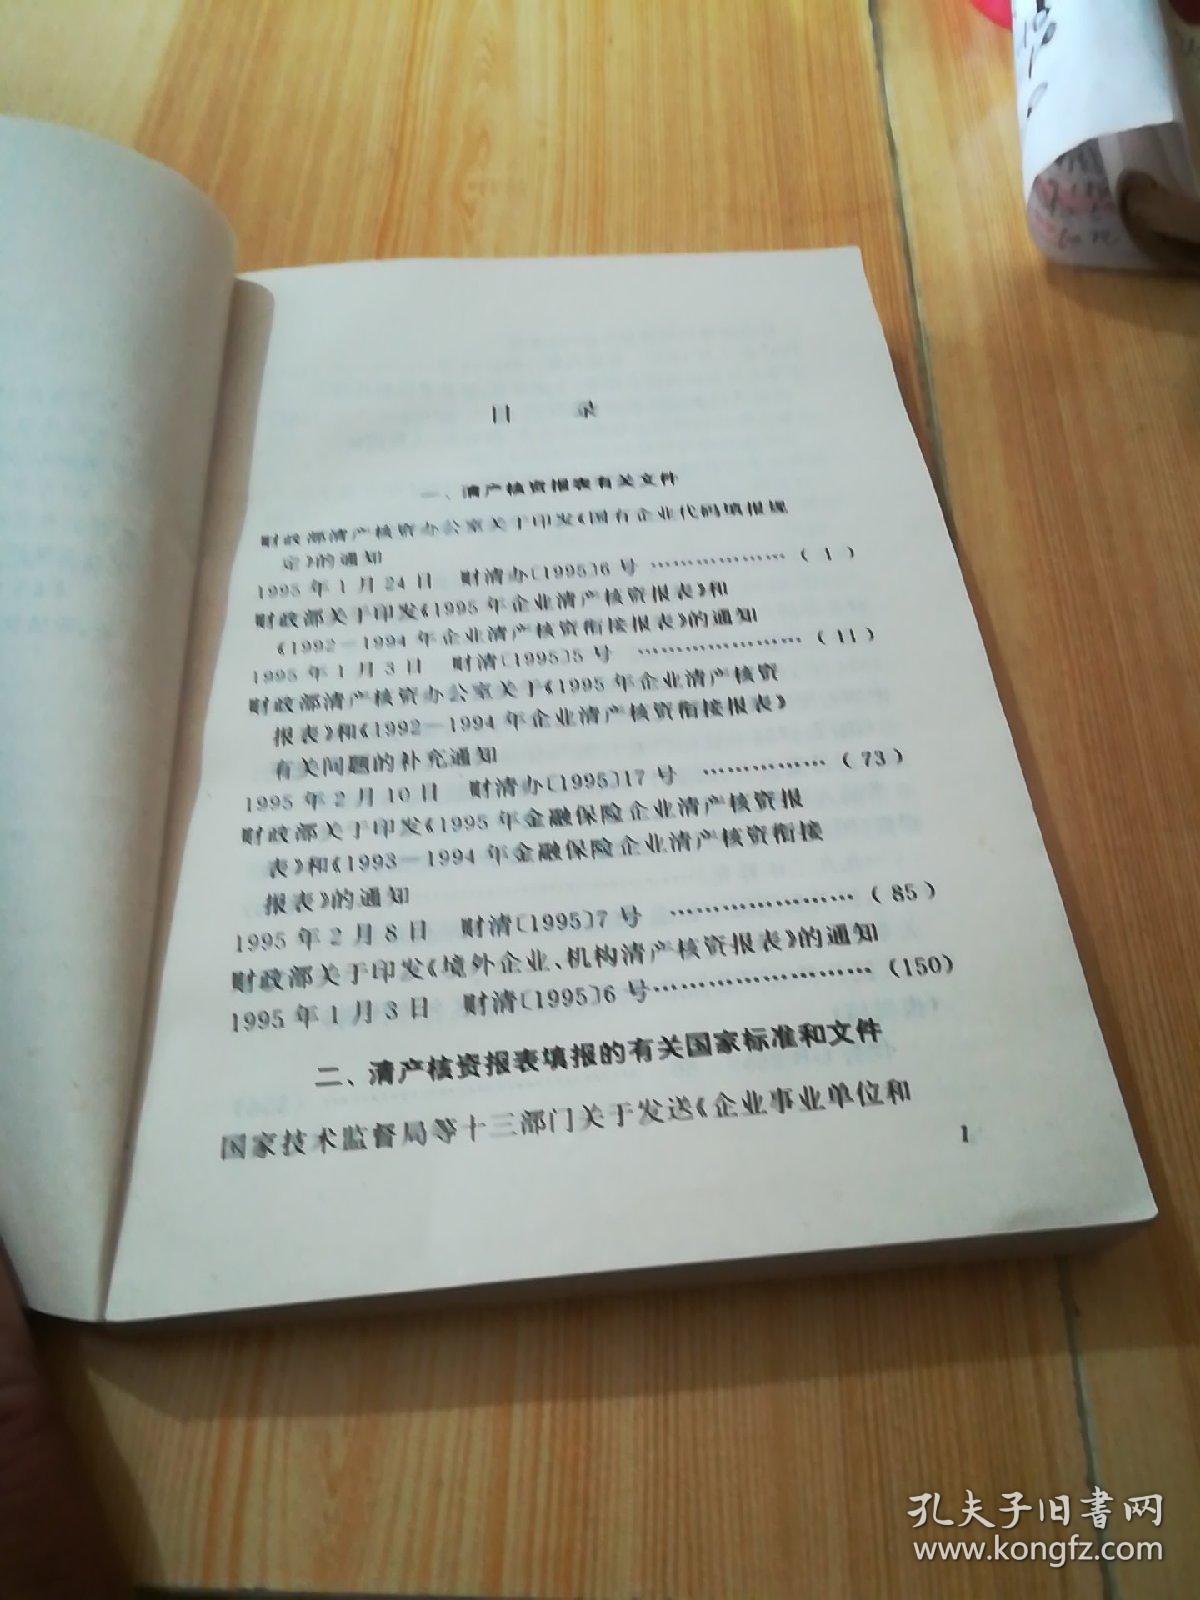 目 录
一、清产核资报表有关文件
财政部清产核资办公室关于印发《国有企业代码填报规
定》的通知
1995年1月24日 财清办〔1995〕6号 ………………(1)
财政部关于印发《1995年企业清产核资报表》和
《1992—1994年企业清产核资衔接报表》的通知
1995年1月3日 财清〔1995〕5号 …………………(11)
财政部清产核资办公室关于《1995年企业清产核资
报表》和《1992—1994年企业清产核资衔接报表》
有关问题的补充通知
1995年2月10日 财清办〔1995〕17号 ……………(73)
财政部关于印发《1995年金融保险企业清产核资报
表》和《1993—1994年金融保险企业清产核资衔接
报表》的通知
1995年2月8日 财清〔1995〕7号 …………………(85)
财政部关于印发《境外企业、机构清产核资报表》的通知
1995年1月3日 财清〔1995〕6号……………………(150)
二、清产核资报表填报的有关国家标准和文件
国家技术监督局等十三部门关于发送《企业事业单位和
1
孔夫子旧书网
www.kongfz.com